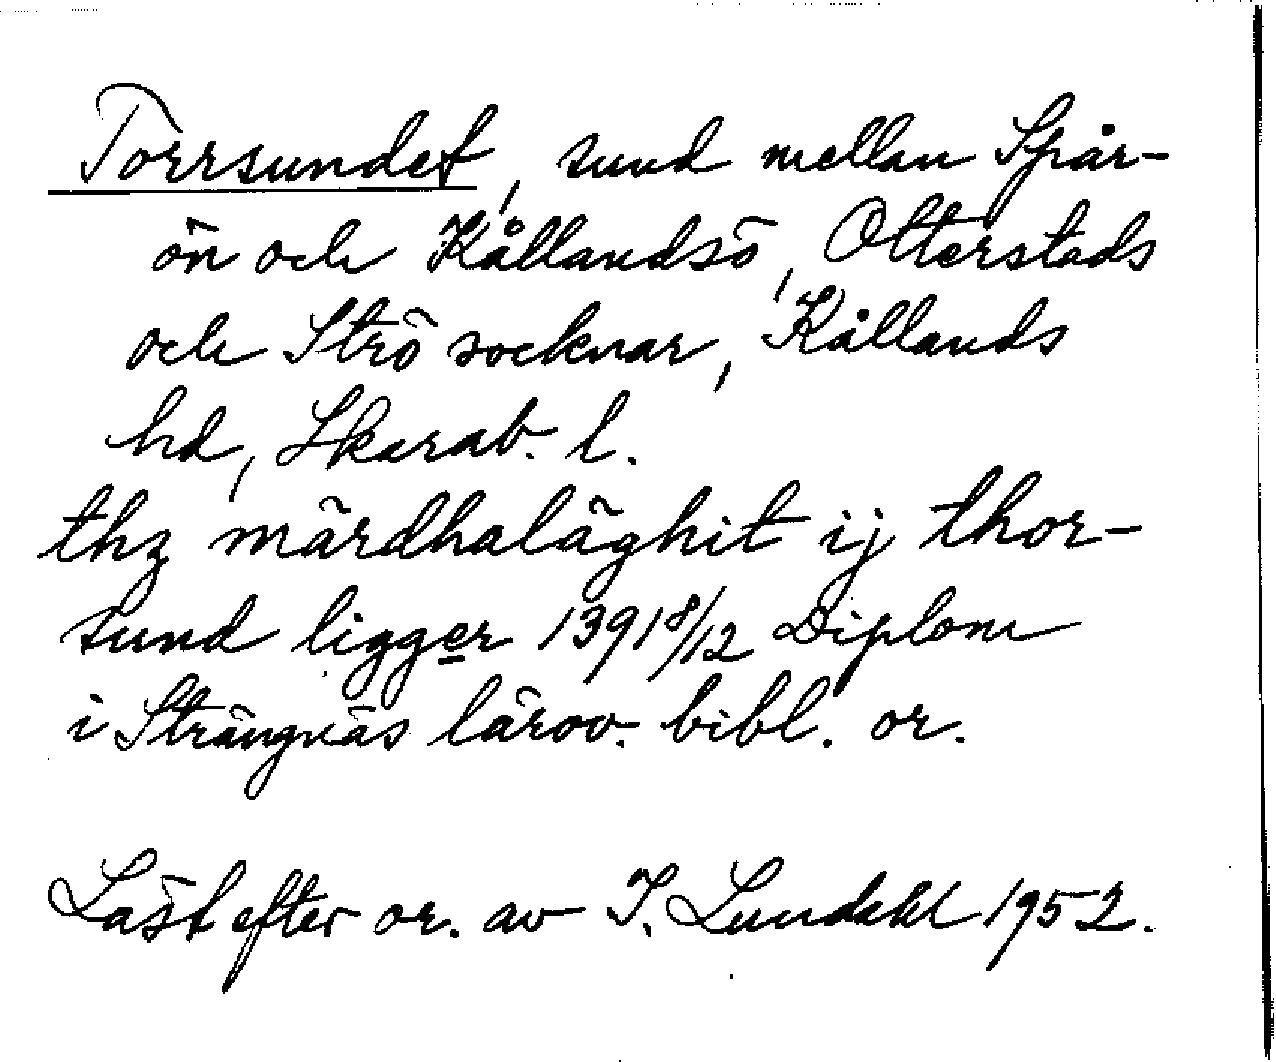 Torrsundet, sund mellan Spår-
ön och Kållandsö, Otterstads
och Strö socknar, Kållands
hd, Skarab. l.
thz märdhaläghit ij thor-
sund ligger 1391 8/12 Diplom
i Strängnäs lärov. bibl. or.
Läst efter or. av I. Lundahl 1952.